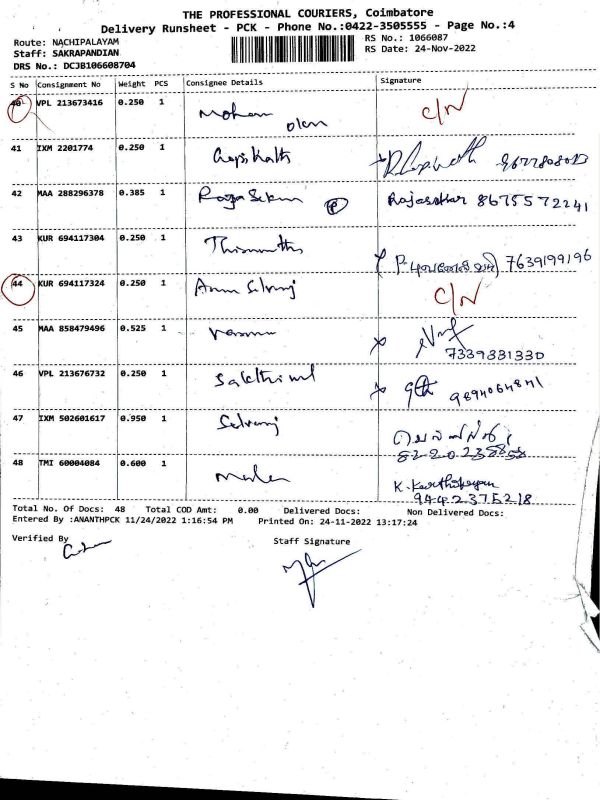 THE PROFESSIONAL COURIERS, Coimbatore
Delivery Runsheet - PCK - Phone No.:0422-3505555 - Page No.:4
Route: NACHIPALAYAM
RS No.: 1066087
Staff: SAKRAPANDIAN
RS Date: 24-Nov-2022
DRS No.: DCJB106608704
S No Consignment No Weight PCS Consignee Details Signature
40 VPL 213673416 0.250 1 Mohan C/N
41 IXM 2201774 0.250 1
42 MAA 288296378 0.385 1 P Rajasekar 8675572241
43 KUR 694117304 0.250 1 7639199196
44 KUR 694117324 0.250 1 Arun Selvaraj C/N
45 MAA 858479496 0.525 1
7339331330
46 VPL 213676732 0.250 1 Sakthivel 9894064841
47 IXM 502601617 0.950 1 Selvaraj
48 TMI 60004084 0.600 1 K. Karthikeyan
9442375218
Total No. Of Docs: 48 Total COD Amt: 0.00 Delivered Docs: Non Delivered Docs:
Entered By :ANANTHPCK 11/24/2022 1:16:54 PM Printed On: 24-11-2022 13:17:24
Verified By
Staff Signature